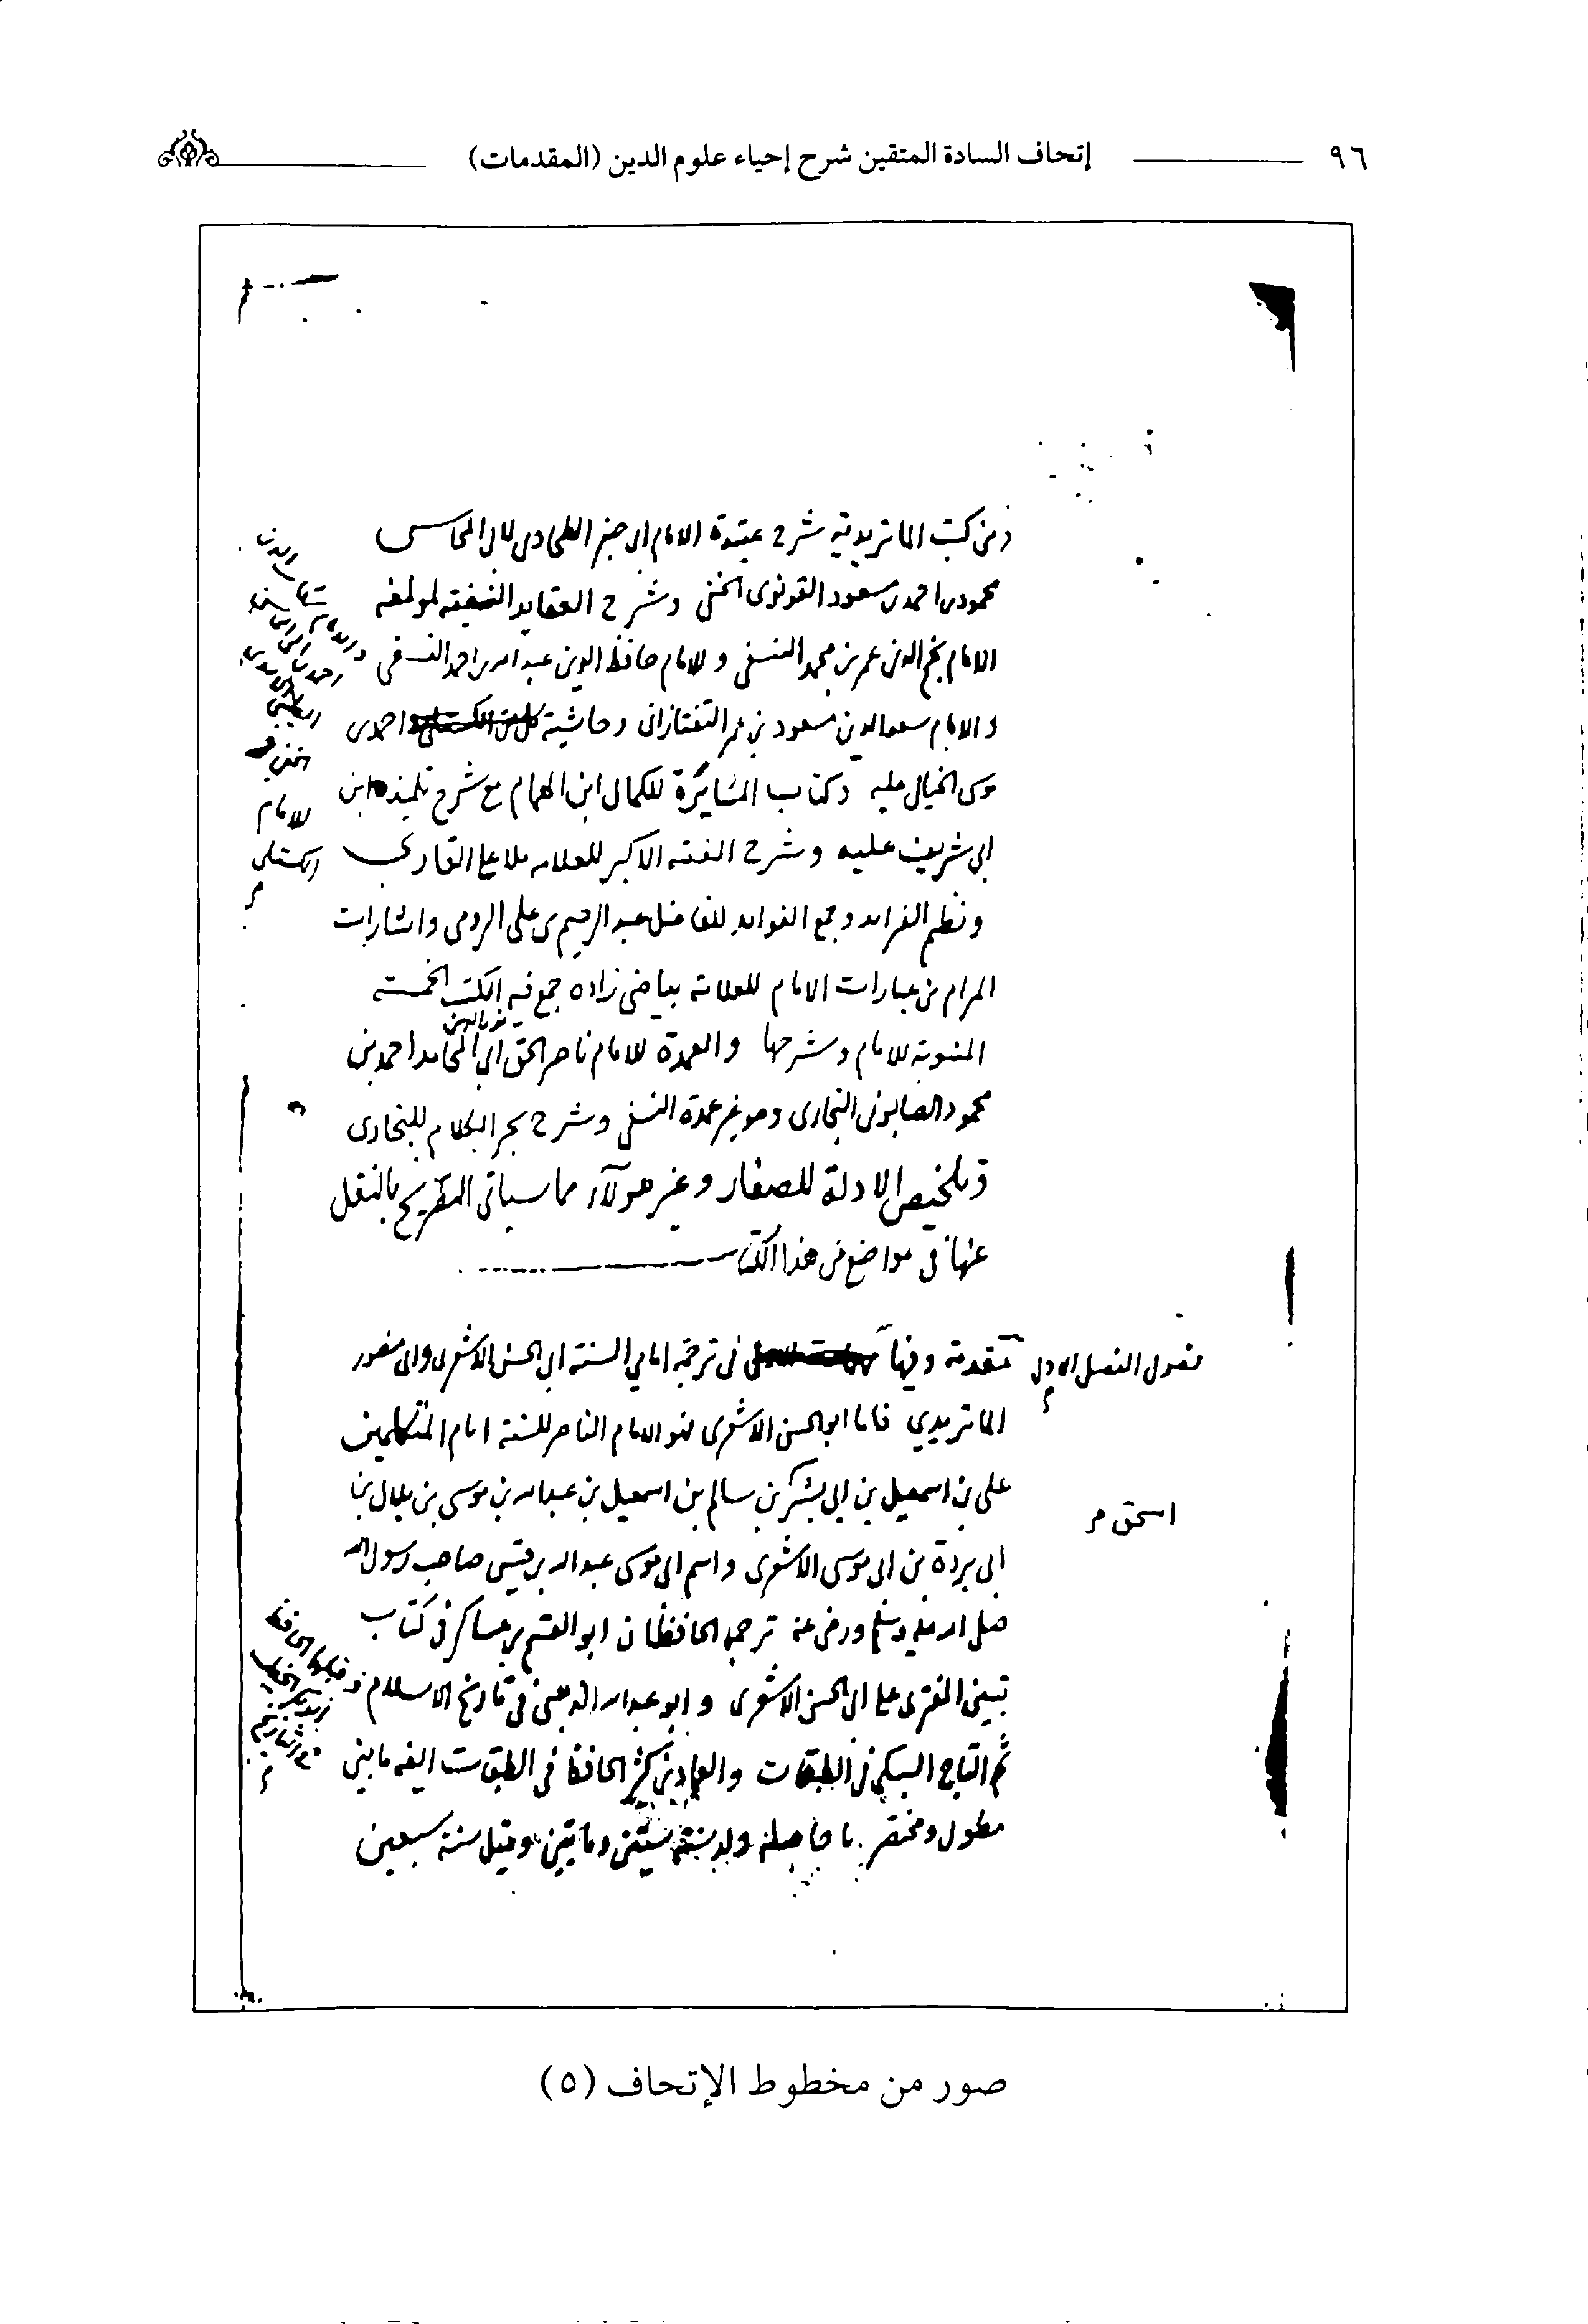 ٩٦
إتحاف السادة المتقين شرح إحياء علوم الدين (المقدمات)
ومن كتب الماتريدية شرح عقيدة الامام ابى جعفر الطحاوى لابى المحاسن
محمود بن احمد بن مسعود القونوى الحنفى وشرح العقايد النسفية لمولفه
الامام نجم الدين عمر بن محمد النسفى وللامام حافظ الدين عبد الله بن احمد النسفى
والامام سعد الدين مسعود بن عمر التفتازانى وحاشية احمد بن
موسى الخيالى عليه وكتاب المسايرة للكمال ابن الهمام مع شرح تلميذه ابن
ابى شريف عليه وشرح الفقه الاكبر للعلامه ملا على القارى
ونظم الفرايد وجمع الفوايد للفاضل عبد الرحيم بن على الرومى واشارات
المرام من عبارات الامام للعلامة بياضى زاده جمع فيه الكتب الخمسة
المنسوبة للامام وشرحها والعمدة للامام ناصر الحق نور الدين ابى المحامد احمد بن
محمود الصابونى البخارى وهو غير عمدة النسفى وشرح بحر الكلام للبخارى
وتلخيص الادلة للصفار وغير هولآء مما سياتى التصريح بالنقل
عنها فى مواضع من هذا الكتاب
للامام
الكستلى
مقدمة وفيها فى ترجمة امامى السنة ابى الحسن الاشعرى وابى منصور
فصول الفصل الاول
الماتريدي فاما ابو الحسن الاشعرى فهو الامام الناصر للسنة امام المتكلمين
على بن اسمعيل بن ابى بشر بن سالم بن اسمعيل بن عبد الله بن موسى بن بلال بن
اسحق
ابى بردة بن ابى موسى الاشعرى واسم ابى موسى عبد الله بن قيس صاحب رسول الله
صلى الله عليه وسلم ورضى عنه ترجمه الحافظان ابو القسم بن عساكر فى كتاب
تبيين المفترى على ابى الحسن الاشعرى وابو عبد الله الذهبى فى تاريخ الاسلام
وقبلهما الحافظ
ثم التاج السبكى فى الطبقات والعماد بن كثير الحافظ فى الطبقات ايضه مابين
مطول ومختصر ما حاصله ولد سنة ستين ومايتين وقيل سنة سبعين
صور من مخطوط الإتحاف (٥)